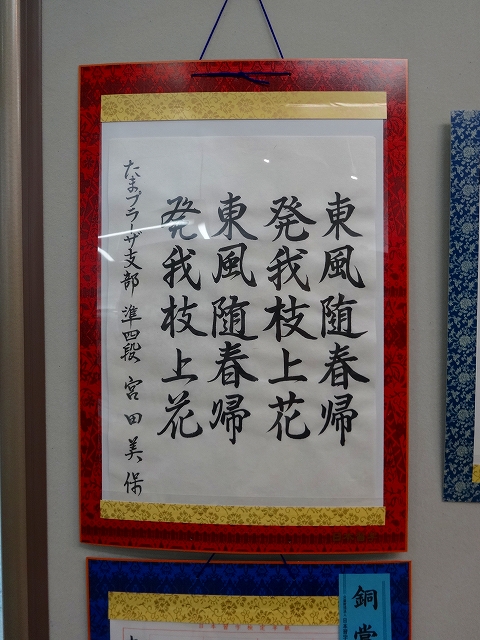 東風随春帰
発我枝上花
東風随春帰
発我枝上花
たまプラーザ支部 準四段 宮田美保
銅賞